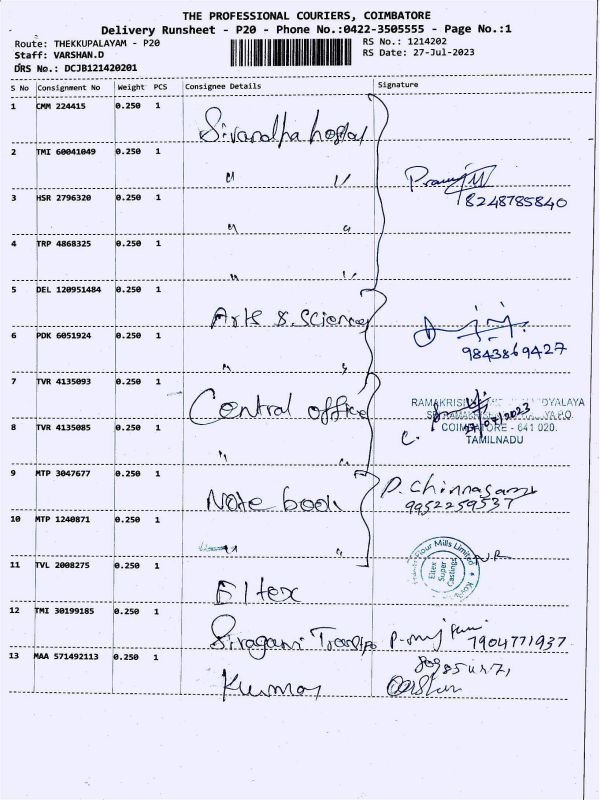 THE PROFESSIONAL COURIERS, COIMBATORE
Delivery Runsheet - P20 - Phone No.:0422-3505555 - Page No.:1
Route: THEKKUPALAYAM - P20
RS No.: 1214202
Staff: VARSHAN.D
RS Date: 27-Jul-2023
DRS No.: DCJB121420201
S No Consignment No Weight PCS Consignee Details Signature
1 CMM 224415 0.250 1
2 TMI 60041049 0.250 1 " "
8248785840
3 HSR 2796320 0.250 1 " "
4 TRP 4868325 0.250 1 " "
5 DEL 120951484 0.250 1 Arts & Science
9843869427
6 PDK 6051924 0.250 1 " "
7 TVR 4135093 0.250 1 Central office
8 TVR 4135085 0.250 1 " "
COIMBATORE - 641 020.
TAMILNADU
9 MTP 3047677 0.250 1 Note book
9952259537
10 MTP 1240871 0.250 1 "
11 TVL 2008275 0.250 1 Eltex
Flour Mills Limited
Eltex
Super
Castings
12 TMI 30199185 0.250 1
7904771937
13 MAA 571492113 0.250 1 Kumar